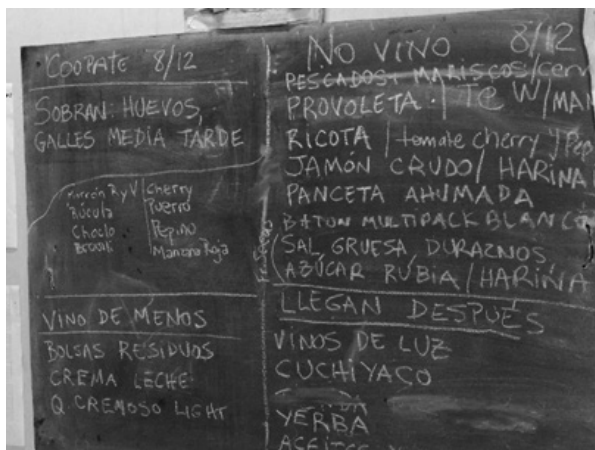 COOPATE 8/12
SOBRAN: HUEVOS,
GALLES MEDIA TARDE
Morrón R y V Cherry
Rúcula Puerro
Choclo Pepino
Brocoli Manzana Roja
VINO DE MENOS
BOLSAS RESIDUOS
CREMA LECHE
Q CREMOSO LIGHT
NO VINO 8/12
PESCADOS, MARISCOS/cerv
PROVOLETA. / TE W/MAN
RICOTA / tomate cherry y Pep
JAMÓN CRUDO / HARINA
PANCETA AHUMADA
BATON MULTIPACK BLANCO
SAL GRUESA DURAZNOS
AZÚCAR RUBIA / HARINA
LLEGAN DESPUÉS
VINOS DE LUZ
CUCHIYACO
YERBA
ACEITES